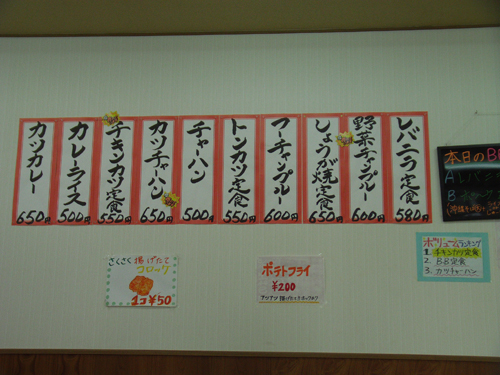 レバニラ定食
580円
野菜チャンプルー
600円
しょうが焼定食
650円
フーチャンプルー
600円
トンカツ定食
550円
チャーハン
500円
カツチャーハン
650円
チキンカツ定食
550円
カレーライス
500円
カツカレー
650円
本日のB
A
B
ボリュームランキング
1. チキンカツ定食
2. B.B定食
3. カツチャーハン
さくさく 揚げたて
コロッケ
1コ¥50
ポテトフライ
¥200